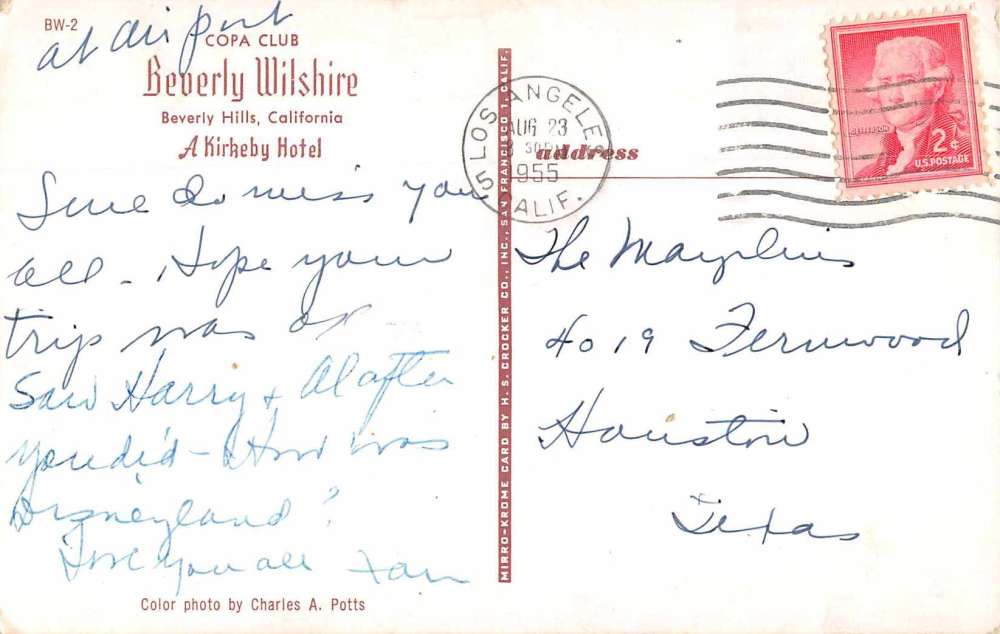 BW-2
at airport
COPA CLUB
Beverly Wilshire
Beverly Hills, California
A Kirkeby Hotel
Sure do miss you
all - Hope your
trip was ok
Saw Harry & Al after
you did - How was
Disneyland?
Love you all
Color photo by Charles A. Potts
MIRRO-KROME CARD BY H. S. CROCKER CO., INC., SAN FRANCISCO 1, CALIF.
LOS ANGELES
AUG 23
30PM
1955
5 CALIF.
address
JEFFERSON
2¢
U.S. POSTAGE
The
4019 Fernwood
Houston
Texas